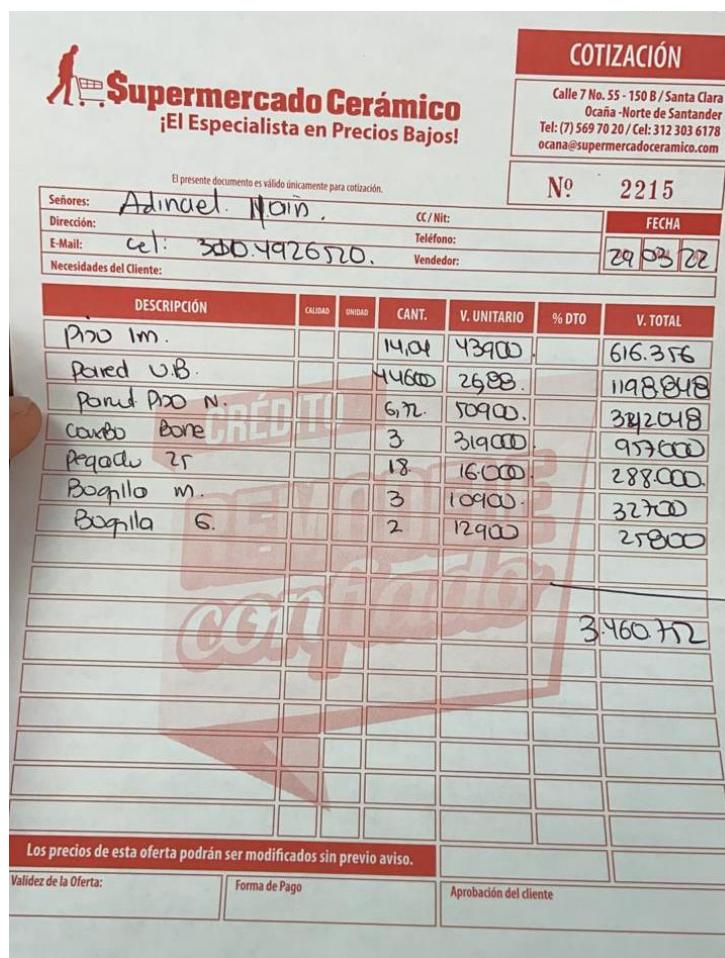 COTIZACIÓN
Supermercado Cerámico
¡El Especialista en Precios Bajos!
Calle 7 No. 55 - 150 B / Santa Clara
Ocaña -Norte de Santander
Tel: (7) 569 70 20 / Cel: 312 303 6178
ocana@supermercadoceramico.com
El presente documento es válido únicamente para cotización.
Nº 2215
Señores: Adinael.
CC / Nit:
FECHA
Dirección:
Teléfono:
29 03 22
E-Mail: cel: 300.4926520.
Vendedor:
Necesidades del Cliente:
DESCRIPCIÓN CALIDAD UNIDAD CANT. V. UNITARIO % DTO V. TOTAL
Piso 1m. 14,04 43900 616.356
Pared U.B. 44600 26,88. 1198.848
Pared Piso N. 6,72. 50900. 342048
Combo Bone 3. 319000. 957000
Pegado 25 18. 16.000. 288.000.
Boqilla m. 3 10900. 32700
Boqilla G. 2 12900 25800
3.460.752
CRÉDITO
REMODELE
confiado
Los precios de esta oferta podrán ser modificados sin previo aviso.
Validez de la Oferta:
Forma de Pago
Aprobación del cliente